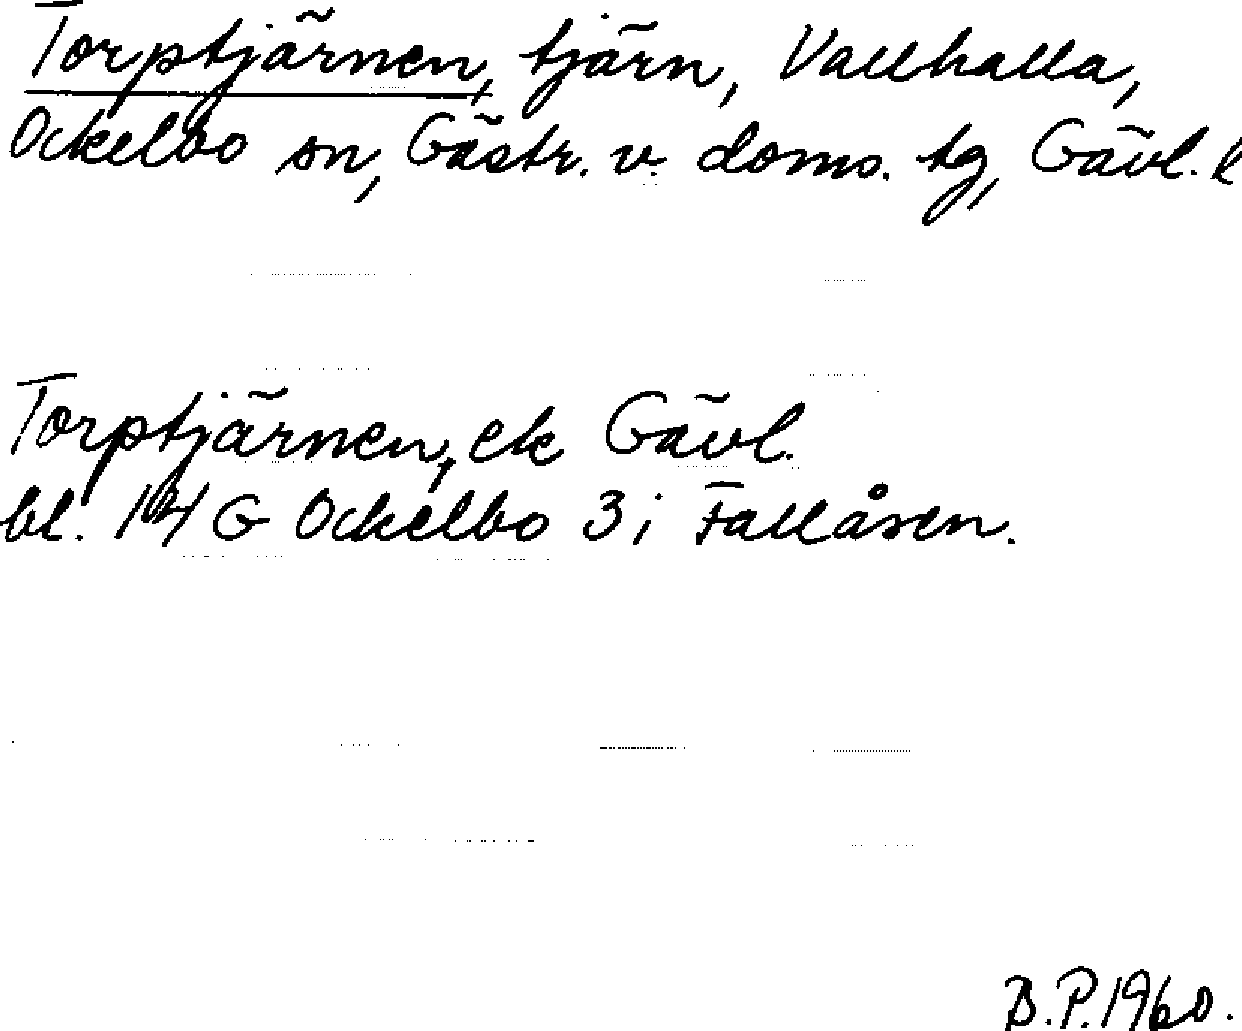 Torptjärnen, tjärn, Vallhalla,
Ockelbo sn, Gästr. v. doms. tg, Gävl. l
Torptjärnen, ek Gävl.
bl. 14 G Ockelbo 3 i Fallåsen.
B.P. 1960.